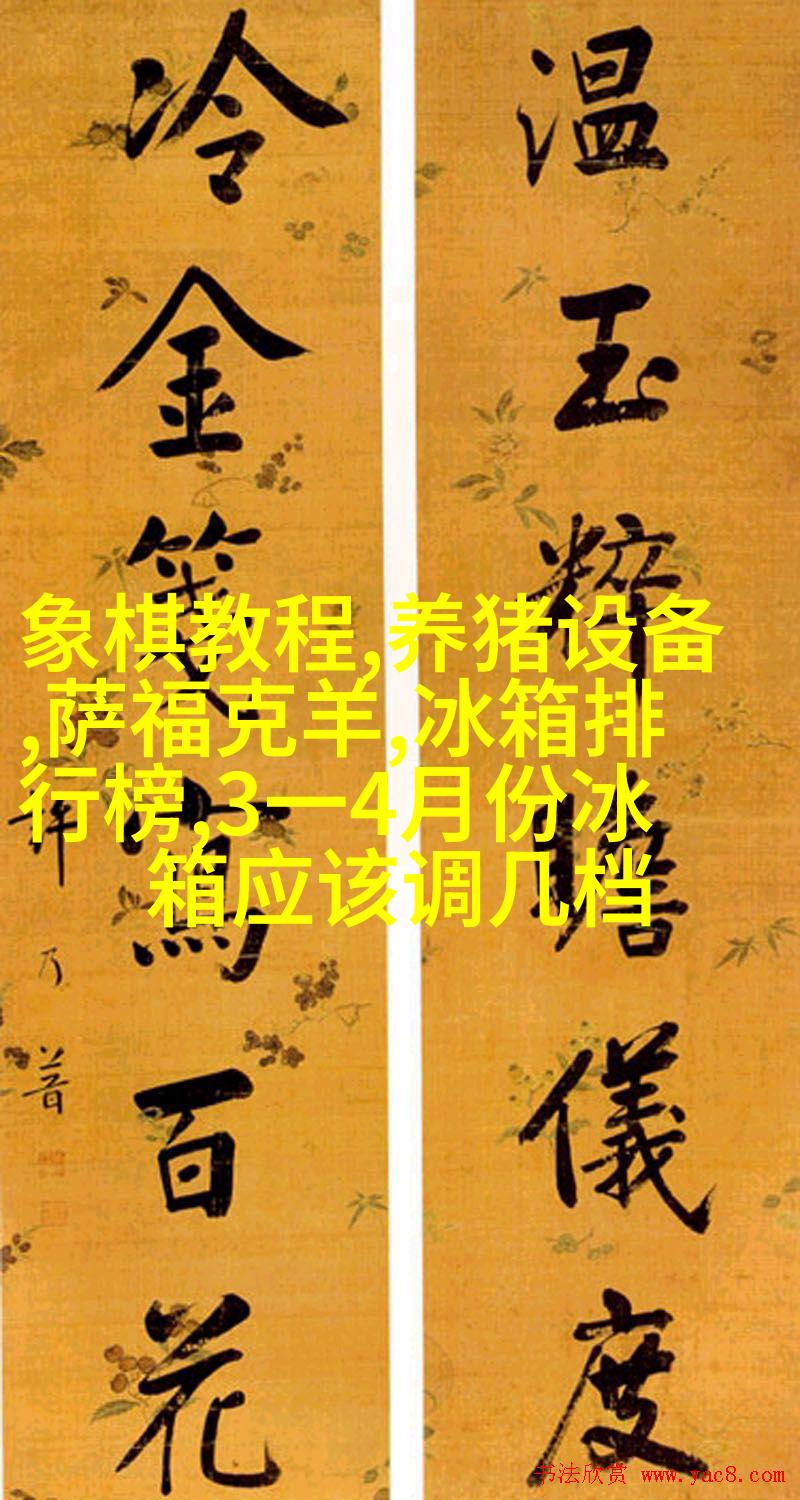 温玉粹瞻儀度
冷金箋寫百花
許乃普
象棋教程,养猪设备
,萨福克羊,冰箱排
行榜,3一4月份冰
箱应该调几档
书法欣赏 www.yac8.com